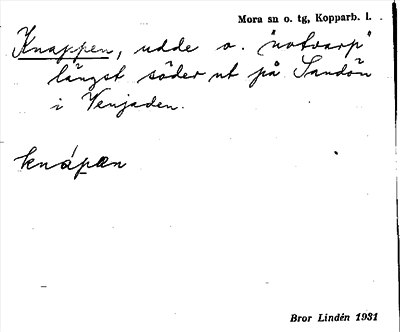 Mora sn o. tg, Kopparb. l.
Knappen, udde o. "notvarp"
längst söder ut på Sandön
i Venjaden.
knápæn
Bror Lindén 1931